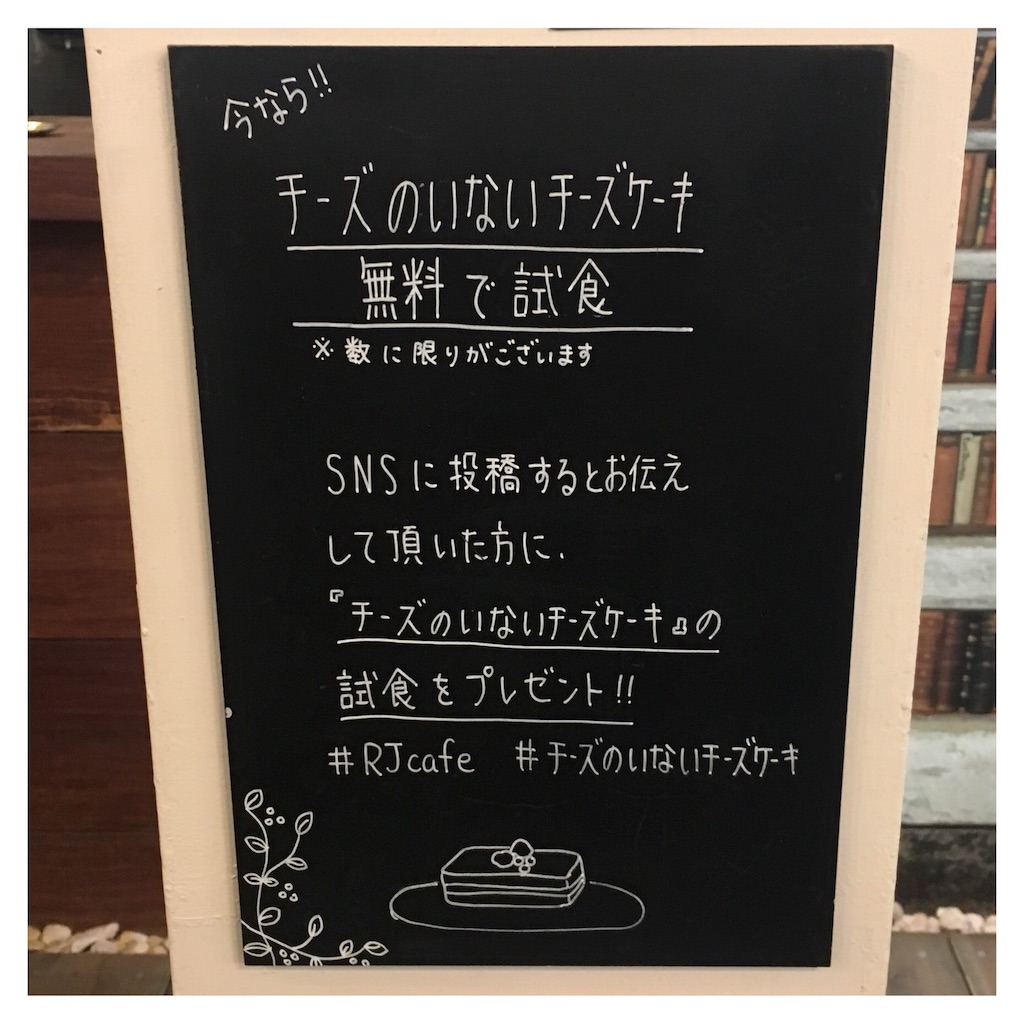 今なら!!
チーズのいないチーズケーキ
無料で試食
※数に限りがございます
SNSに投稿するとお伝え
して頂いた方に、
『チーズのいないチーズケーキ』の
試食をプレゼント!!
#RJcafe #チーズのいないチーズケーキ